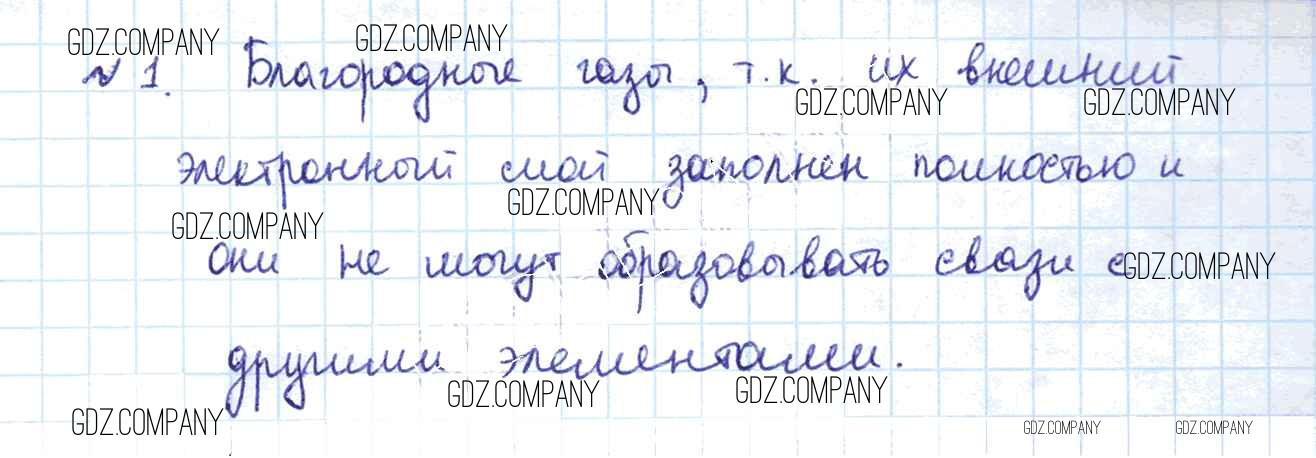 GDZ.COMPANY GDZ.COMPANY
№ 1. Благородные газы, т.к. их внешний
GDZ.COMPANY GDZ.COMPANY
электронный слой заполнен полностью и
GDZ.COMPANY GDZ.COMPANY
они не могут образовывать связи с GDZ.COMPANY
другими элементами.
GDZ.COMPANY GDZ.COMPANY
GDZ.COMPANY GDZ.COMPANY GDZ.COMPANY